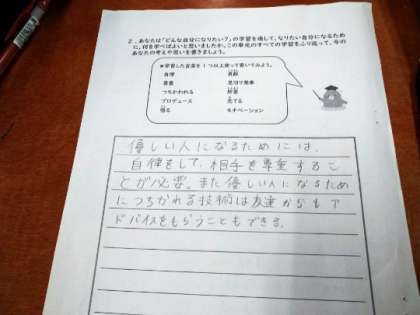 2．あなたは「どんな自分になりたい？」の学習を通して、なりたい自分になるため
に、何を学べばよいと思いましたか。この単元のすべての学習をふり返って、今の
あなたの考えや思いを書きましょう。
★学習した言葉を１つ以上使って書いてみよう。
自律 貢献
著書 見切り発車
つちかわれる
プロデュース 充てる
悟る モチベーション
優しい人になるためには、
自律をして、相手を尊重するこ
とが必要。また優しい人になるため
につちかれる技術は友達からもア
ドバイスをもらうこともできる。